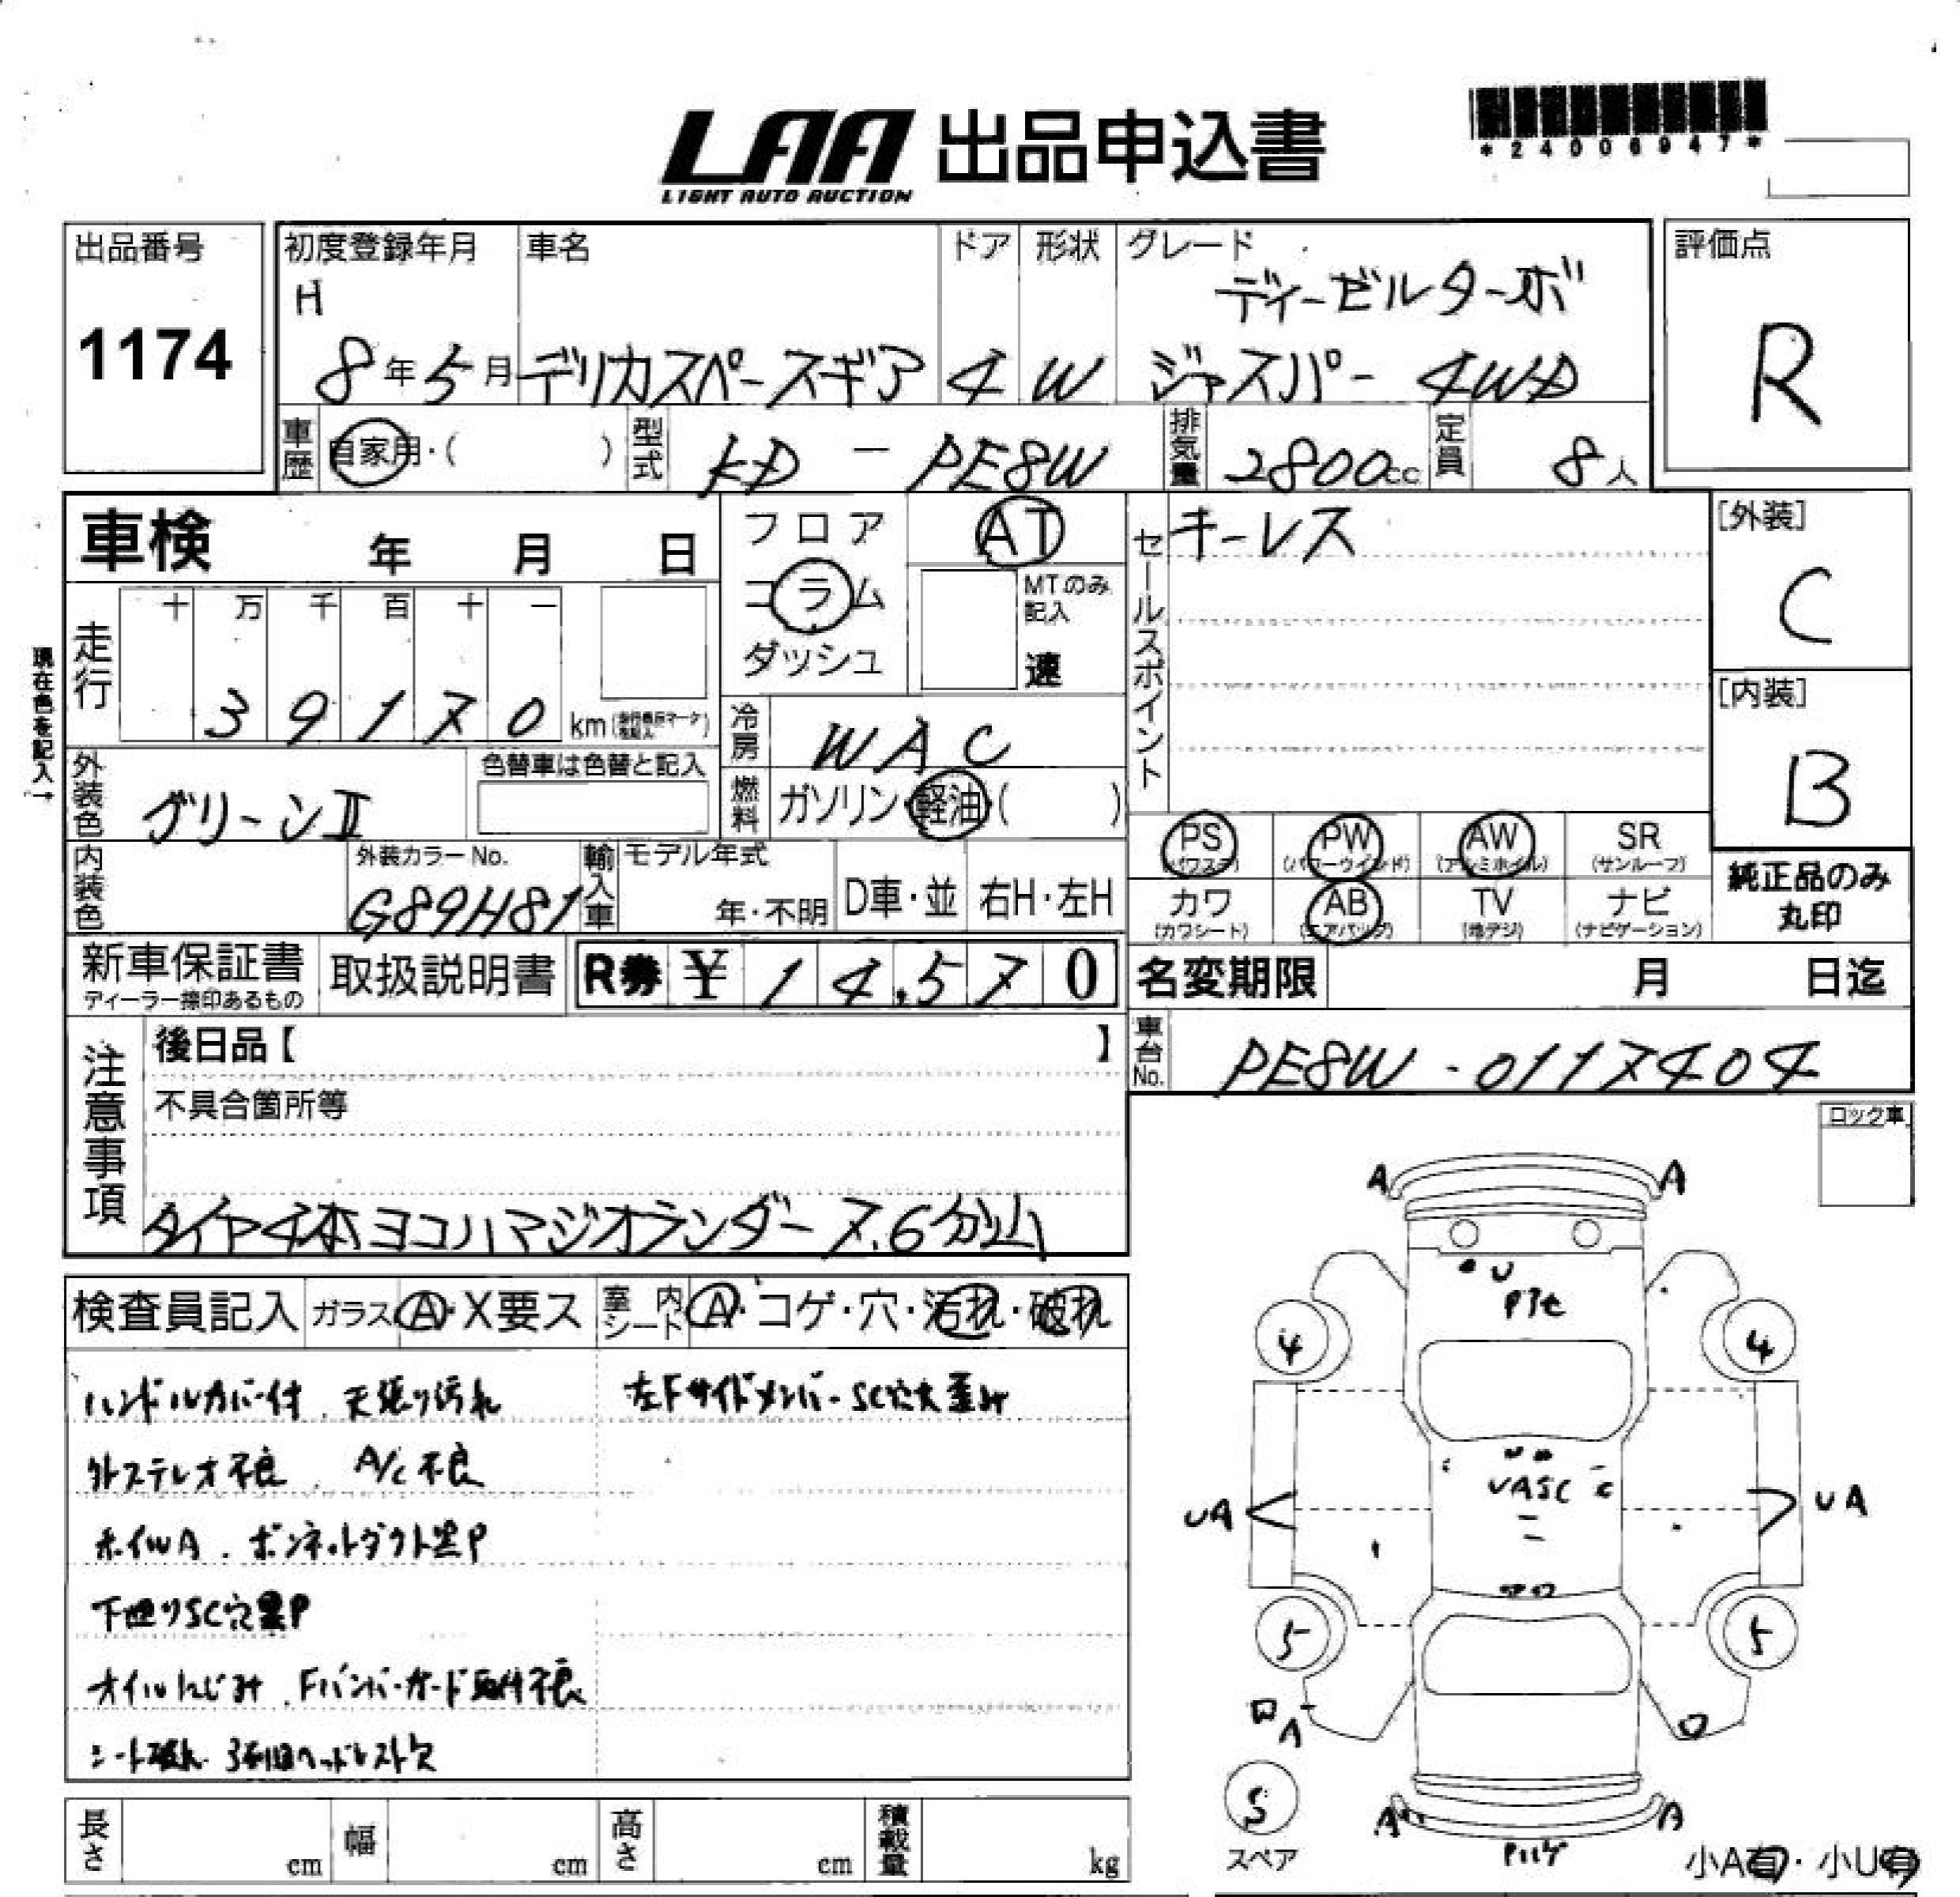 LAA 出品申込書
LIGHT AUTO AUCTION
*24006947*
出品番号
1174
初度登録年月
H
8年5月
車名
デリカスペースギア
ドア
4
形状
W
グレード
ディーゼルターボ
ジャスパー 4WD
評価点
R
車歴 自家用・( )
型式 KD - PE8W
排気量 2800cc
定員 8人
車検 年 月 日
フロア
コラム
ダッシュ
AT
MTのみ記入
速
セールスポイント
キーレス
[外装]
C
[内装]
B
現在色を記入→
走行
十 万 千 百 十 一
3 9 1 7 0 km
冷房 WAC
燃料 ガソリン・軽油・( )
外装色 グリーンⅡ
色替車は色替と記入
内装色
外装カラーNo.
G89H81
輸入車
モデル年式
年・不明
D車・並
右H・左H
PS (パワステ)
PW (パワーウインド)
AW (アルミホイル)
SR (サンルーフ)
カワ (カワシート)
AB (エアバッグ)
TV (地デジ)
ナビ (ナビゲーション)
純正品のみ
丸印
新車保証書
ディーラー捺印あるもの
取扱説明書
R券 ¥ 14,570
名変期限 月 日迄
車台No. PE8W-0117404
注意事項
後日品【 】
不具合箇所等
タイヤ4本ヨコハマジオランダー 7.6分山
ロック車
検査員記入
ガラス A・X要ス
室内シート A・コゲ・穴・汚れ・破れ
ハンドルカバー付 . 天張り汚れ
外ステレオ不良 . A/C不良
ホイルA . ボンネットダクト黒P
下廻りSC穴黒P
オイルにじみ . Fバンパーガード取付不良
シート破れ . 3列目ヘッドレスト欠
左FサイドメンバーSC穴大歪み
A A
U
4 4
UASC
UA UA
5 5
A
S
スペア
A A
小A有・小U有
長さ cm
幅 cm
高さ cm
積載量 kg